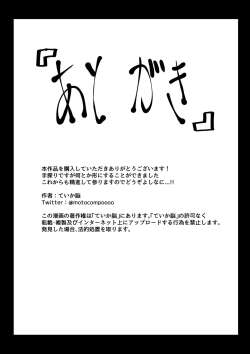 『あとがき』
本作品を購入していただきありがとうございます！
手探りですが何とか形にすることができました
これからも精進して参りますのでどうぞよしなに...!!
作者：ていか脳
Twitter：@motocompoooo
この漫画の著作権は「ていか脳」にあります。「ていか脳」の許可なく
転載・複製及びインターネット上にアップロードする行為を禁止します。
発見した場合、法的処置を取ります。